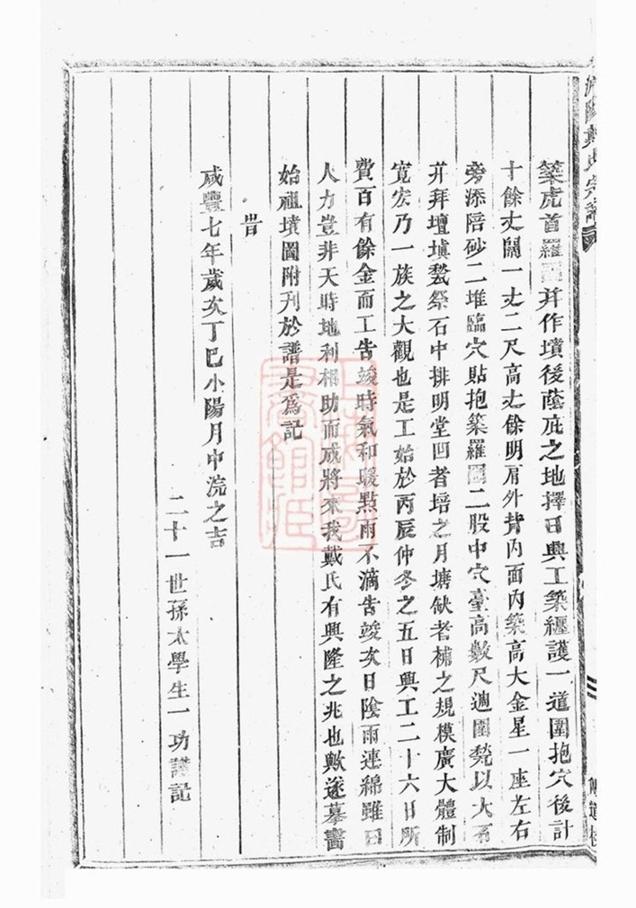 築虎首羅圍并作墳後蔭庇之地擇日興工築纒護一道圍抱穴後計
十餘丈闊一丈二尺高丈餘明肩外背內面內築高大金星一座左右
旁添陪砂二堆臨穴貼抱築羅圍二股中穴臺高數尺週圍甃以大石
并拜壇塡甃祭石中排明堂凹者培之月塘缺者補之規模廣大體制
寬宏乃一族之大觀也是工始於丙辰仲冬之五日興工二十六日所
費百有餘金而工告竣時氣和暖點雨不滴告竣次日陰雨連綿雖曰
人力豈非天時地利相助而成將來我戴氏有興隆之兆也歟遂摹畵
始祖墳圖附刊於譜是為記
旹
咸豐七年歲次丁巳小陽月中浣之吉
二十一世孫太學生一功謹記